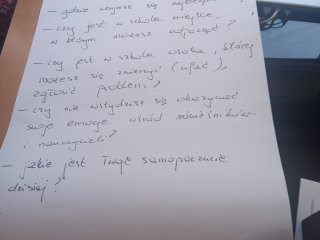 - gdzie czujesz się najlepiej?
- czy jest w szkole miejsce,
w którym możesz odpocząć?
- czy jest w szkole osoba, której
możesz się zwierzyć (ufać),
zgłosić problem?
- czy nie wstydzisz się okazywać
swoje emocje wśród rówieśników
i nauczycieli?
- jakie jest Twoje samopoczucie
dzisiaj?